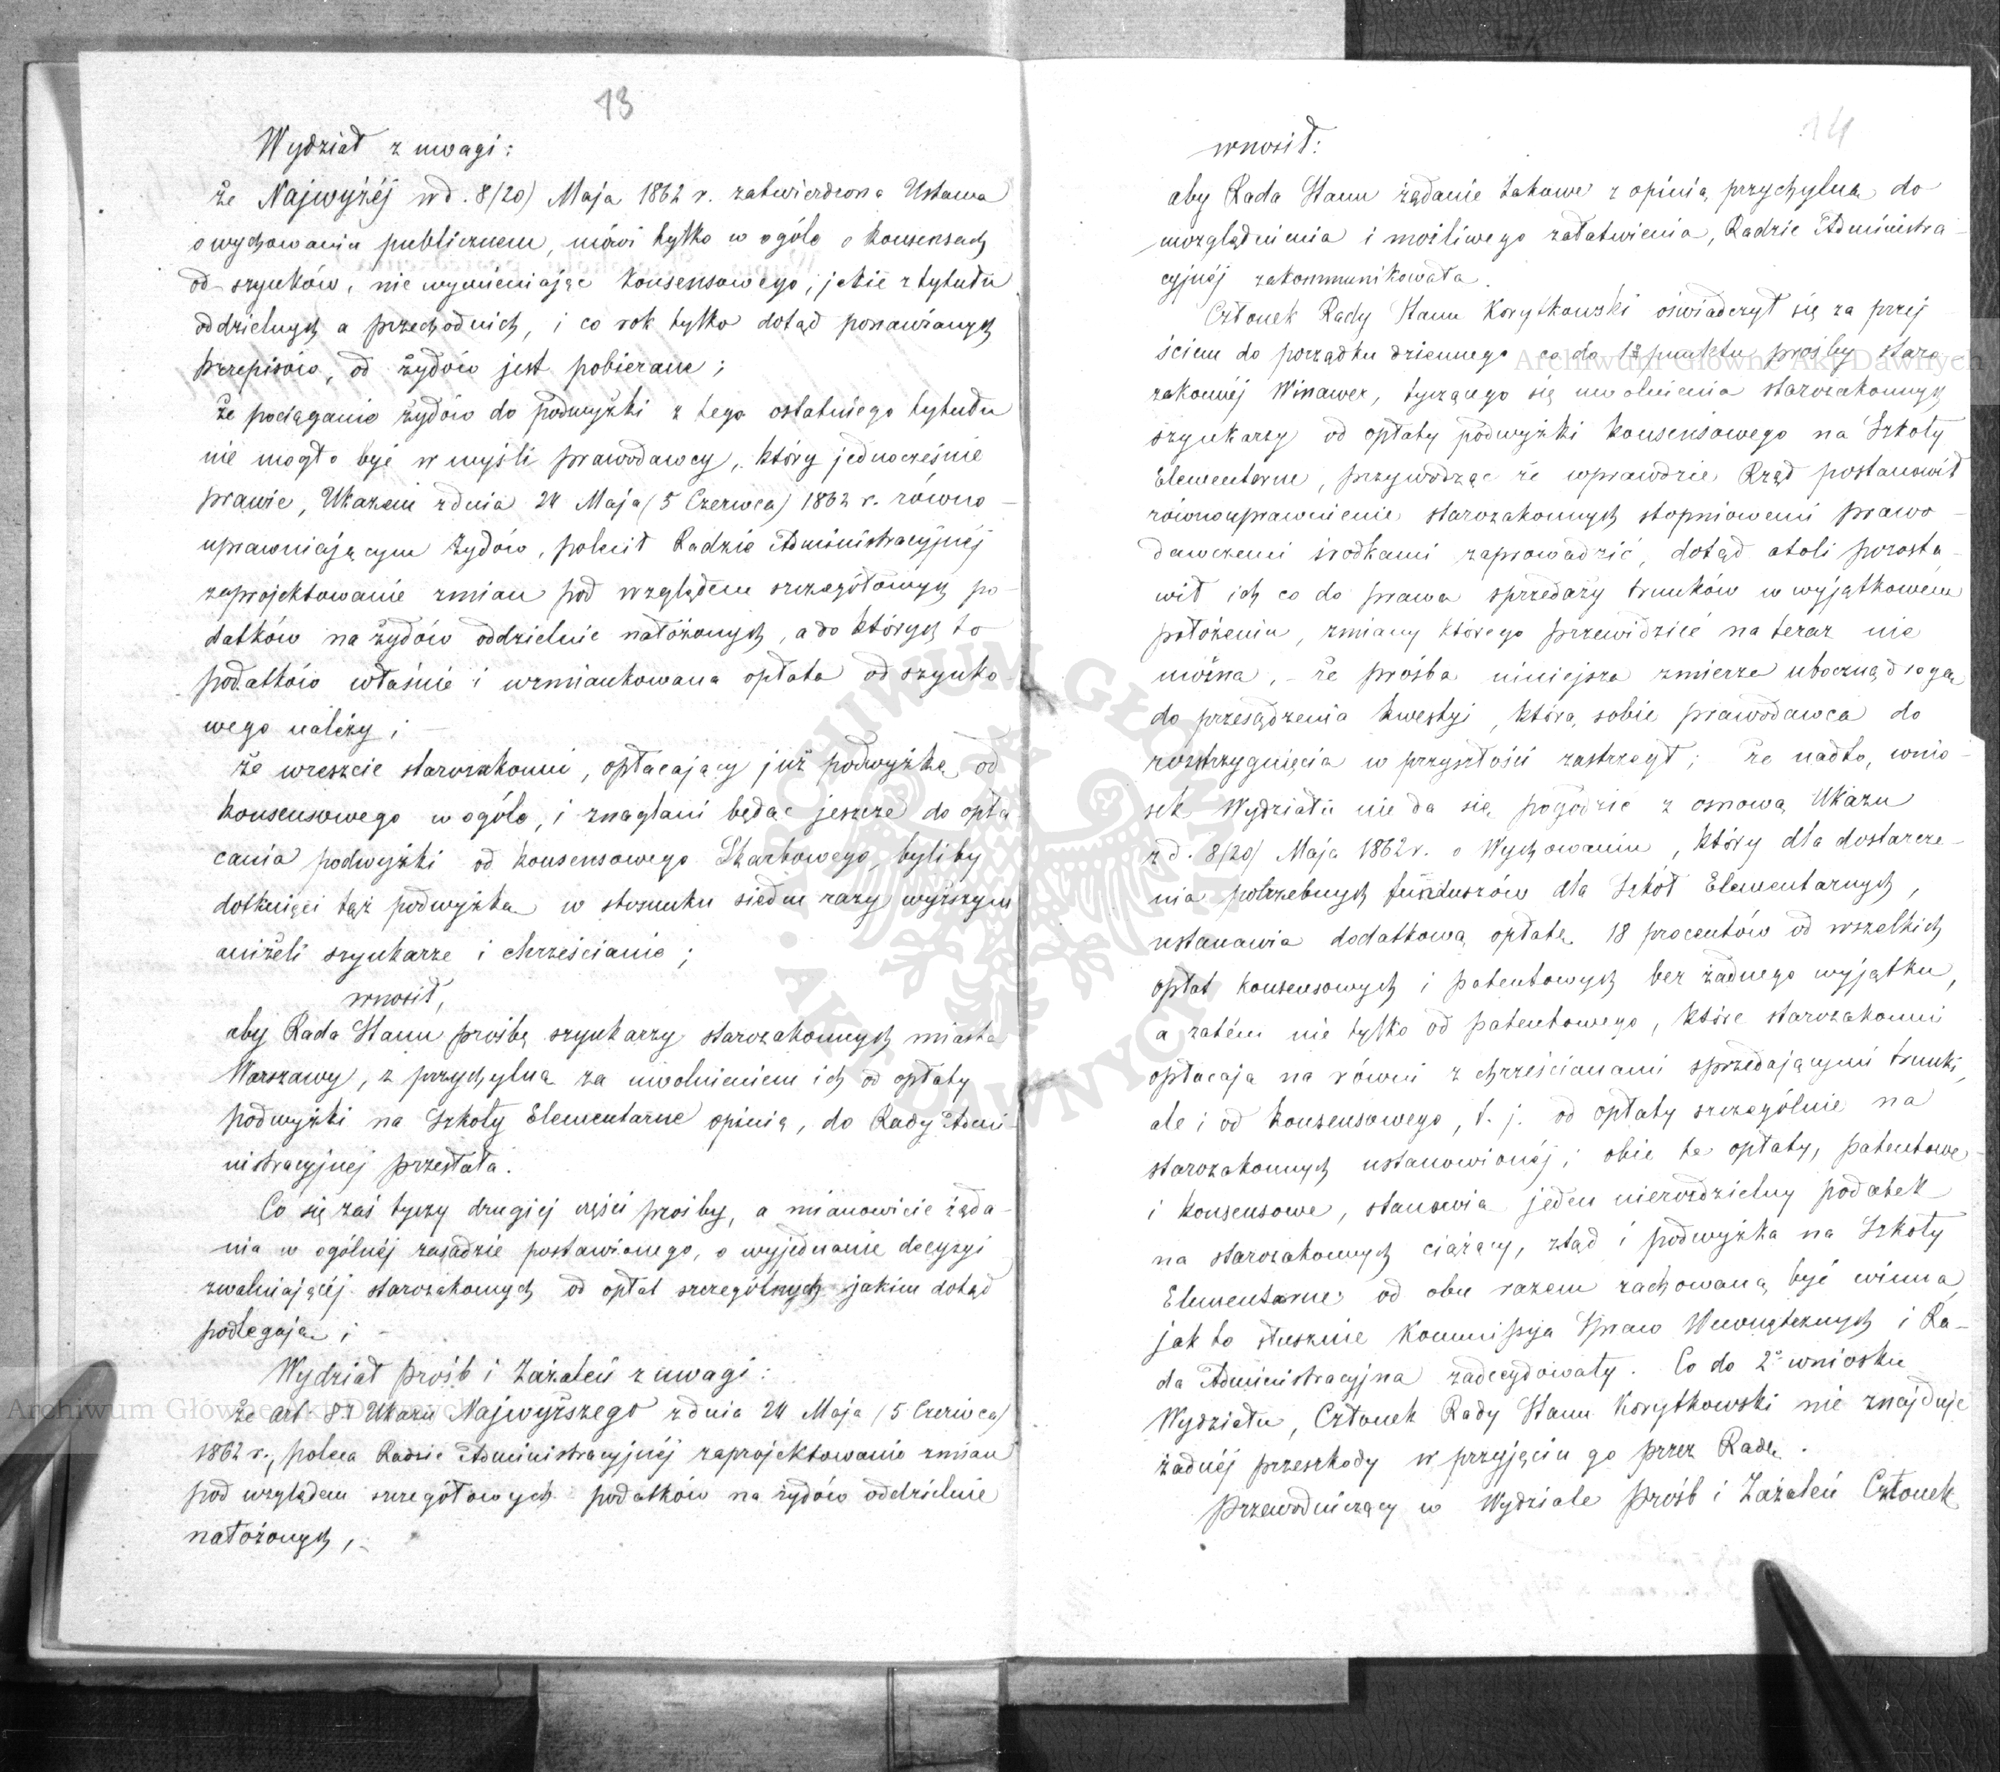 13
Wydział z uwagi:
że Najwyżej w d. 8/20) Maja 1862 r. zatwierdzona Ustawa
o wychowaniu publicznem, mówi tylko w ogóle o konsensach
od szynków, nie wymieniając konsensowego, jakie z tytułu
oddzielnych a przechodnich, i co rok tylko dotąd ponawianych
przepisów, od żydów jest pobierane;
że pociąganie żydów do podwyżki z tego ostatniego tytułu
nie mogło być w myśli prawodawcy, który jednocześnie
prawie, Ukazem z dnia 24 Maja (5 Czerwca) 1862 r. równo-
uprawniającym żydów, polecił Radzie Administracyjnéj
zaprojektowanie zmian pod względem szczegółowych po-
datków na żydów oddzielnie nałożonych, a do których to
podatków właśnie i wzmiankowana opłata od szynko-
wego należy; -
że wreszcie starozakonni, opłacający już podwyżkę od
konsensowego w ogóle, i znagłani będąc jeszcze do opła
cania podwyżki od konsensowego Skarbowego, byliby
dotknięci tąż podwyżką w stosunku siedm razy wyższym
aniżeli szynkarze i chrześcianie;
wnosił,
aby Rada Stanu prośbę szynkarzy starozakonnych miasta
Warszawy, z przychylną za uwolnieniem ich od opłaty
podwyżki na Szkoły Elementarne opinią, do Rady Admi
nistracyjnej przesłała.
Co się zaś tyczy drugiej części prośby, a mianowicie żąda-
nia w ogólnéj zasadzie postawionego, o wyjednanie decyzyi
zwalniającéj starozakonnych od opłat szczególnych jakim dotąd
podlegają; -
Wydział próśb i Zażaleń z uwagi:
że art 8y Ukazu Najwyższego z dnia 24 Maja (5 Czerwca)
1862 r., poleca Radzie Administracyjnéj zaprojektowanie zmian
pod względem szczegółowych podatków na żydów oddzielnie
nałożonych, -
14
wnosił:
aby Rada Stanu żądanie takowe z opinią przychylną do
uwzględnienia i możliwego załatwienia, Radzie Administra-
cyjnéj zakommunikowała.
Członek Rady Stanu Korytkowski oświadczył się za przej
ściem do porządku dziennego co do 1º punktu prośby staro
zakonnéj Winawer, tyczącego się uwolnienia starozakonnych
szynkarzy od opłaty podwyżki konsensowego na Szkoły
Elementarne, przywodząc że wprawdzie Rząd postanowił
równouprawnienie starozakonnych stopniowemi prawo-
dawczemi środkami zaprowadzić, dotąd atoli pozosta-
wił ich co do prawa sprzedaży trunków w wyjątkowém
położeniu, zmiany którego przewidzieć na teraz nie
można, - że prośba niniejsza zmierza uboczną drogą
do przesądzenia kwestyi, którą sobie prawodawca do
rozstrzygnięcia w przyszłości zastrzegł; że nadto, wnio-
sek Wydziału nie da się pogodzić z osnową Ukazu
z d. 8/20) Maja 1862 r. o Wychowaniu, który dla dostarcze-
nia potrzebnych funduszów dla Szkół Elementarnych,
ustanawia dodatkową opłatę 18 procentów od wszelkich
opłat konsensowych i patentowych bez żadnego wyjątku,
a zatém nie tylko od patentowego, które starozakonni
opłacają na równi z chrześcianami sprzedającymi trunki,
ale i od konsensowego, t. j. od opłaty szczególnie na
starozakonnych ustanowionéj; obie te opłaty, patentowe
i konsensowe, stanowią jeden nierozdzielny podatek
na starozakonnych ciążący, ztąd i podwyżka na Szkoły
Elementarne od obu razem zachowaną być winna,
jak to słusznie Kommissya Spraw Wewnętrznych i Ra-
da Administracyjna zadecydowały. Co do 2º wniosku
Wydziału, Członek Rady Stanu Korytkowski nie znajduje
żadnéj przeszkody w przyjęciu go przez Radę.
Przewodniczący w Wydziale Próśb i Zażaleń Członek
Archiwum Główne Akt Dawnych
Archiwum Główne Akt Dawnych
ARCHIWUM GŁÓWNE AKT DAWNYCH